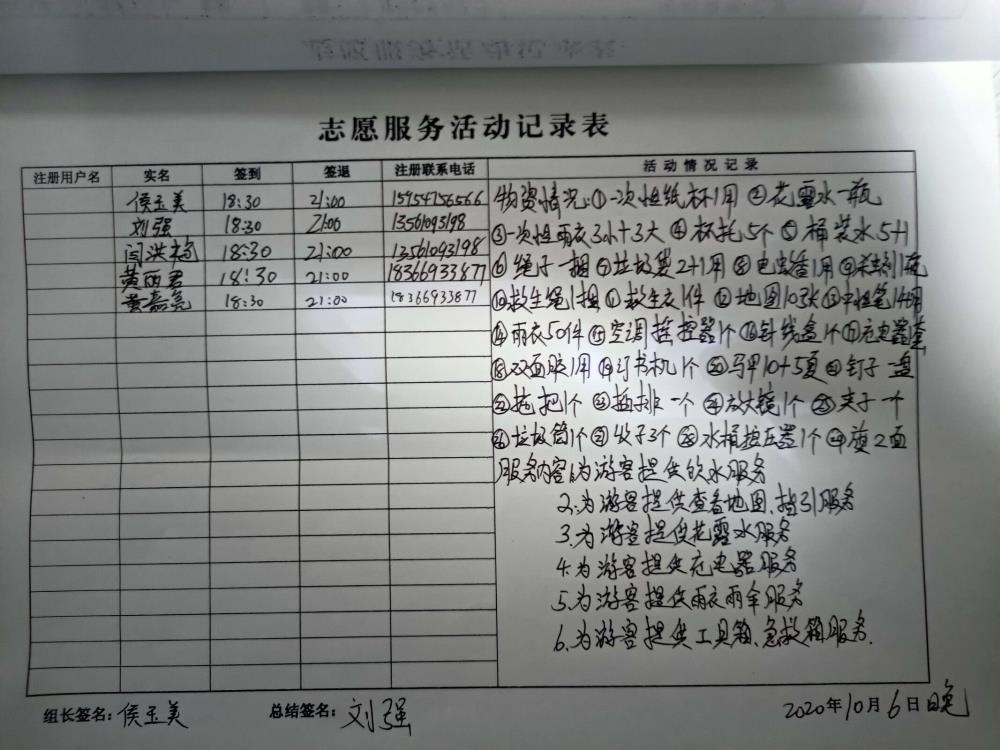 志愿服务活动记录表
注册用户名 实名 签到 签退 注册联系电话 活动情况记录
侯玉美 18:30 21:00 15954156566
刘强 18:30 21:00 13561093198
闫洪 18:30 21:00 13561093198
黄丽君 18:30 21:00 18366933877
黄嘉亮 18:30 21:00 18366933877
物资情况:①一次性纸杯1用 ②花露水一瓶
③一次性雨衣3小+3大 ④杯托5个 ⑤桶装水5+1
⑥绳子一捆 ⑦垃圾袋2+1用 ⑧电虫香1用 ⑨杀虫剂1瓶
⑩救生绳1捆 ⑪救生衣1件 ⑫地图10张 ⑬中性笔14用
⑭雨衣50件 ⑮空调摇控器1个 ⑯针线盒1个 ⑰充电器1套
⑱双面胶1用 ⑲订书机1个 ⑳马甲10+5夏 ㉑钉子一盘
㉒拖把1个 ㉓插排一个 ㉔放大镜1个 ㉕夹子一个
㉖垃圾筒1个 ㉗仪子3个 ㉘水桶抽压器1个 ㉙旗2面
服务内容1.为游客提供饮水服务
2.为游客提供查看地图、指引服务
3.为游客提供花露水服务
4.为游客提供充电器服务
5.为游客提供雨衣雨伞服务
6.为游客提供工具箱、急救箱服务.
组长签名:侯玉美 总结签名:刘强 2020年10月6日晚